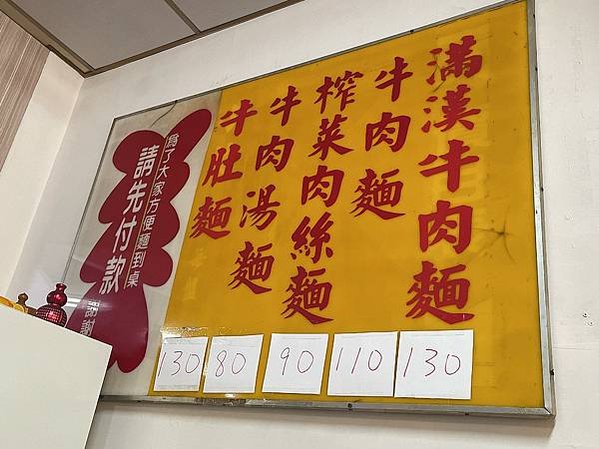 滿漢牛肉麵
牛肉麵
榨菜肉絲麵
牛肉湯麵
牛肚麵
為了大家方便麵到桌
請先付款
謝謝
130
80
90
110
130